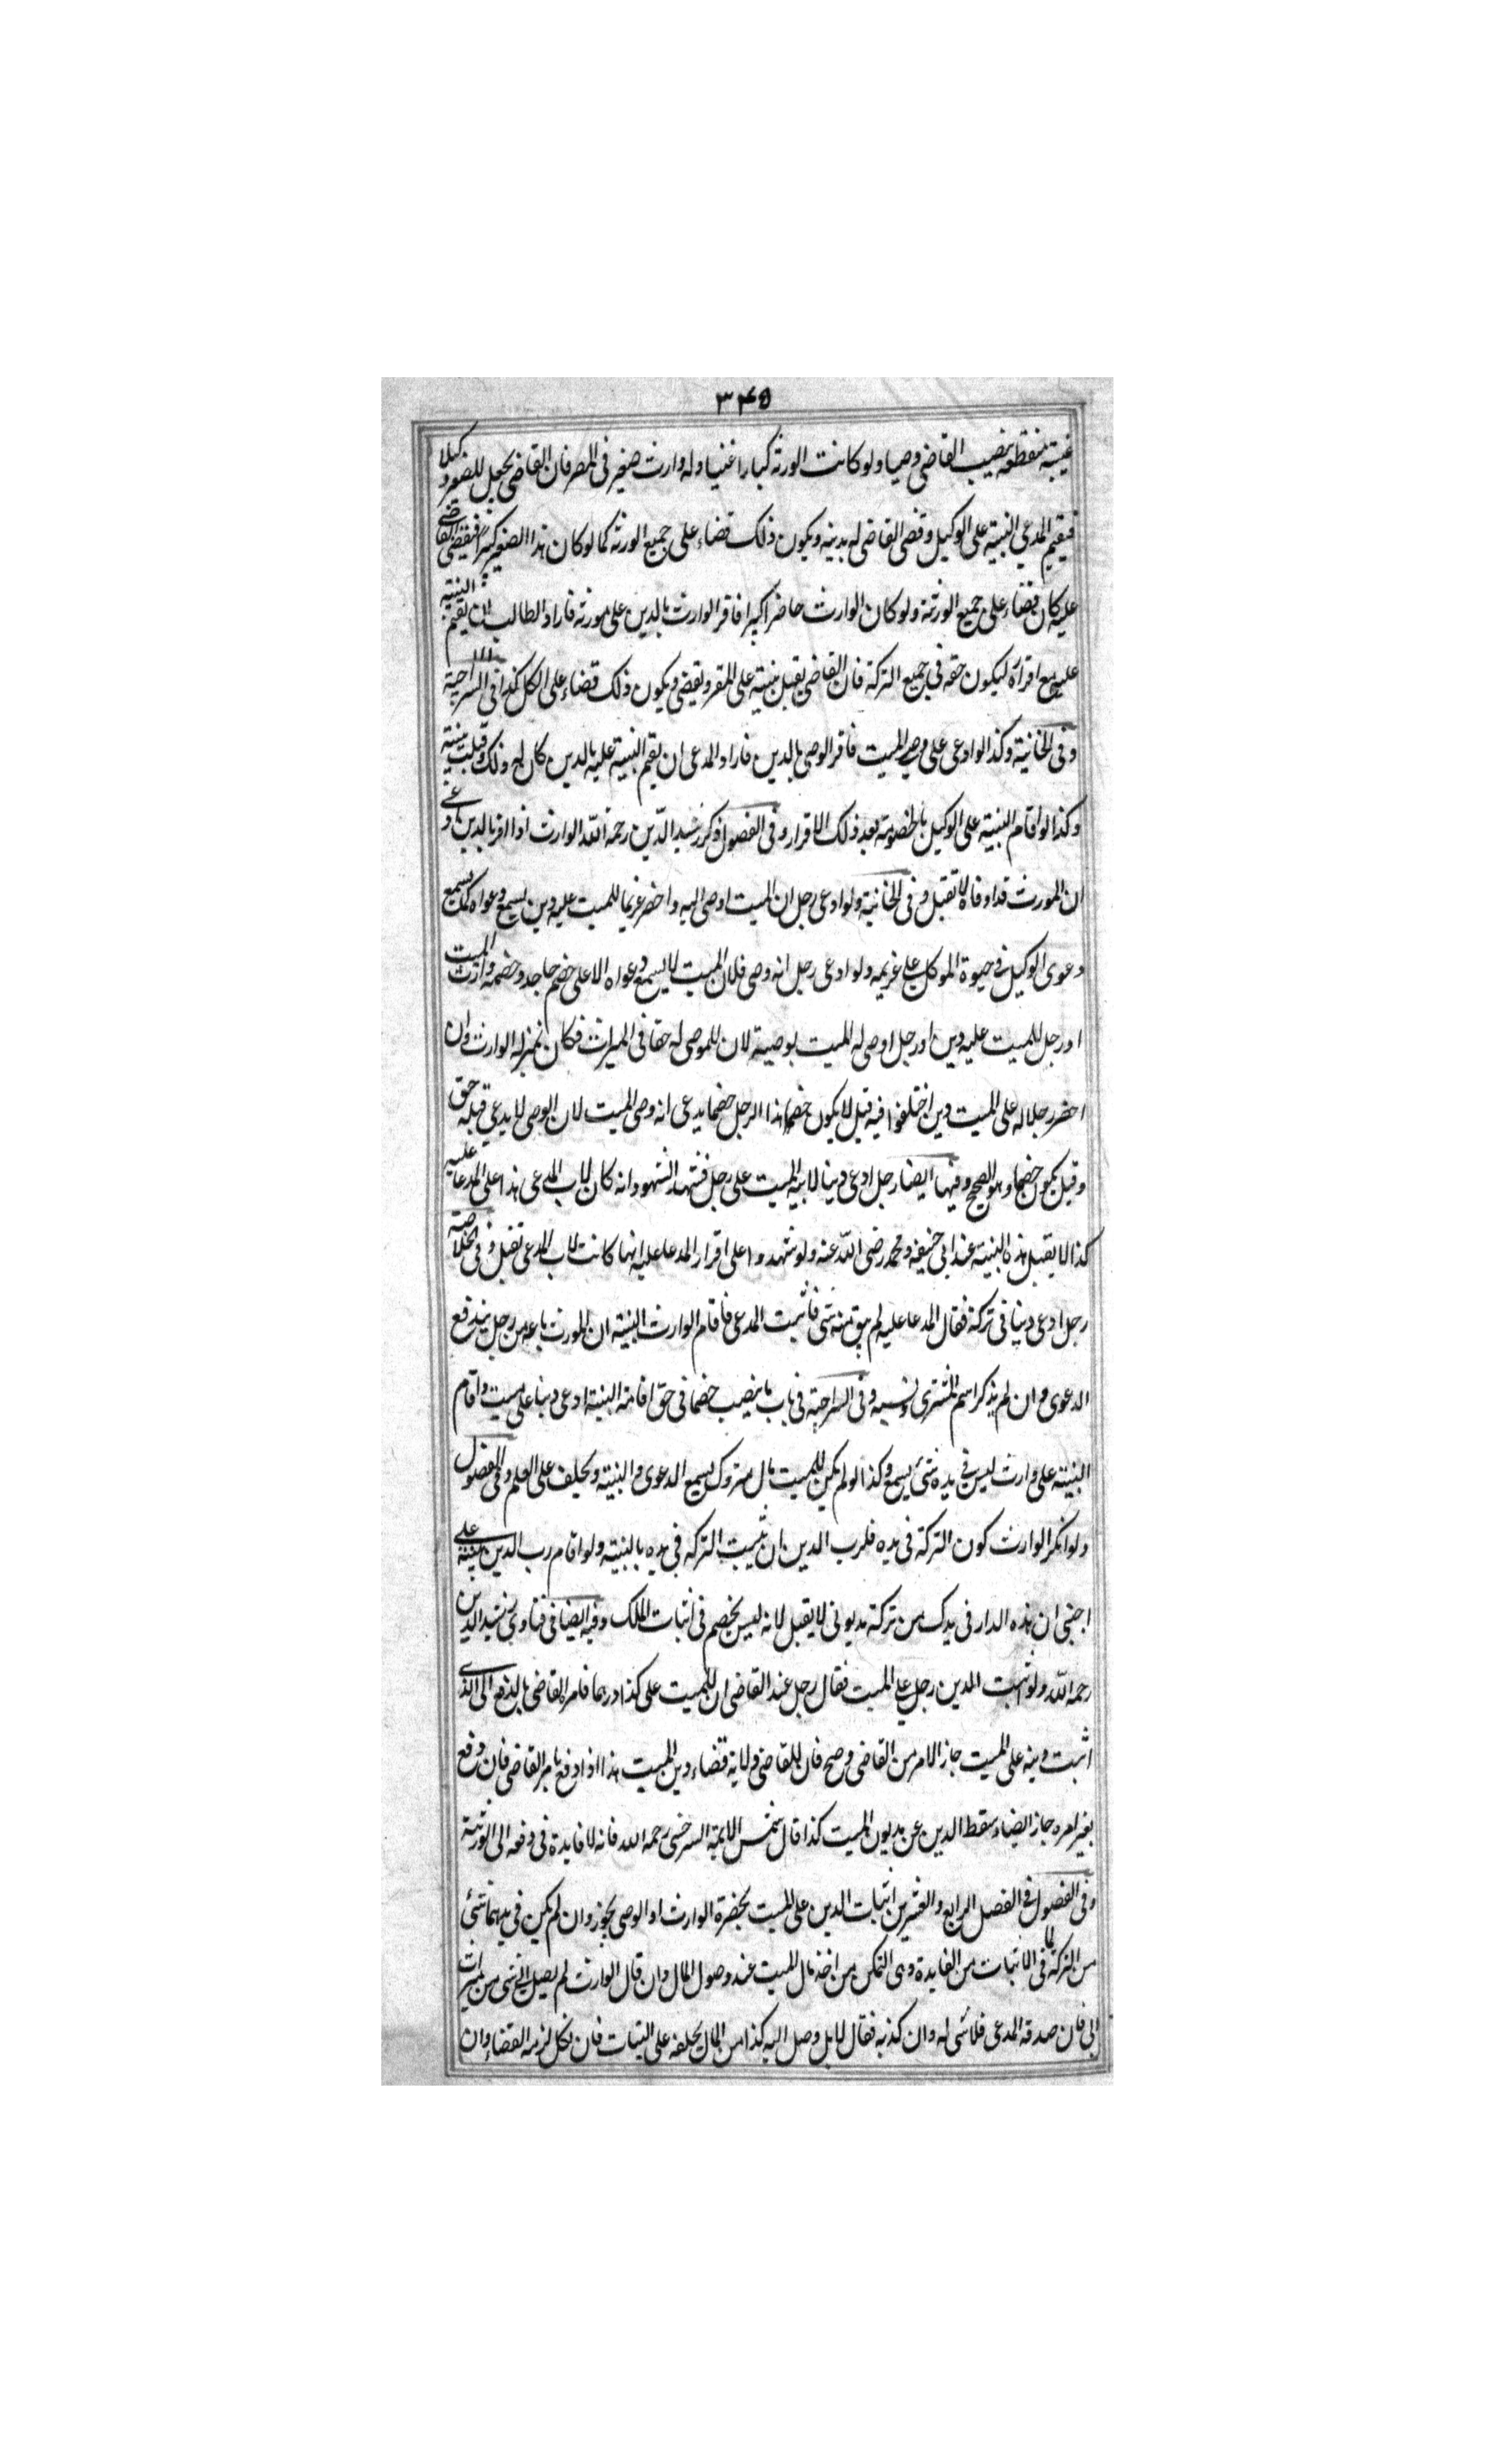 ۳۴۵
غيبته منقطعة ينصب القاضى وصيا ولو كانت الورثة كبارا اغنيا وله وارث صغير فى المصر فان القاضى يجعل للصغير وكيلا
فيقيم المدعي البينة على الوكيل وقضى القاضى له بدينه ويكون ذلك قضاء على جميع الورثة كما لو كان هذا الصغير كبيرا فيقضى القاضى
عليه كان قضاء على جميع الورثة ولو كان الوارث حاضرا كبيرا فاقر الوارث بالدين على مورثه فاراد الطالب ان يقيم البينة
عليه مع اقراره ليكون حقه في جميع التركة فان القاضى يقبل بينته على المقر ويقضى ويكون ذلك قضاء على الكل كذا فى السراجية
وفى الخانية وكذا لو ادعى على وصي الميت فاقر الوصى بالدين فاراد المدعى ان يقيم البينة عليه بالدين كان له ذلك وقبلت بينته
وكذا لو اقام البينة على الوكيل بالخصومة بعد ذلك الاقرار وفى الفصول ذكر رشيد الدين رحمه الله الوارث اذا اقر بالدين وادعى
ان المورث قد اوفاه لا تقبل وفى الخانية ولو ادعى رجل ان الميت اوصى اليه واحضر غريما للميت عليه دين يسمع دعواه كما يسمع
دعوى الوكيل فى حيوة الموكل على غريمه ولو ادعى رجل انه وصى فلان الميت لا يسمع دعواه الا على خصم جاحد وخصمه وارث الميت
او رجل للميت عليه دين او رجل اوصى له الميت بوصية لان للموصى له حقا فى الميراث فكان بمنزلة الوارث وان
احضر رجلا له على الميت دين اختلفوا فيه قيل لا يكون خصما هذا الرجل خصما يدعى انه وصى الميت لان الوصى لا يدعي قبله حق
وقيل يكون خصما وهو الصحيح وفيها ايضا رجل ادعى دينا لابيه الميت على رجل فشهد الشهود انه كان لاب المدعى هذا على المدعا عليه
كذا لا يقبل هذه البينة عند ابى حنيفه ومحمد رضى الله عنه ولو شهدوا على اقرار المدعا عليه انها كانت لاب المدعى تقبل وفى الخلاصة
رجل ادعى دينا فى تركة فقال المدعا عليه لم يبق منه شى فاثبت المدعى فاقام الوارث البينة ان المورث باعه من رجل يندفع
الدعوى وان لم يذكر اسم المشترى ونسبه وفى السراجية فى باب ما ينصب خصما فى حق اقامة البينة ادعى دينا على ميت واقام
البينة على وارث ليس فى يده شئ يسمع وكذا لو لم يكن للميت مال متروك يسمع الدعوى والبينة ويحلف على العلم وفى الفصول
ولو انكر الوارث كون التركة فى يده فلرب الدين ان يثبت التركة فى يده بالبينة ولو اقام رب الدين بينة على
اجنبى ان هذه الدار فى يدك من تركة مديونى لا يقبل لانه ليس بخصم فى اثبات الملك وفيه ايضا فى فتاوى رشيد الدين
رحمه الله ولو اثبت الدين رجل على الميت فقال رجل عند القاضى ان للميت على كذا درهما فامره القاضى بالدفع الى الذى
اثبت دينه على الميت جاز الامر من القاضى وصح فان للقاضى ولاية قضاء دين الميت هذا اذا دفع بامر القاضى فان دفع
بغير امره جاز ايضا وسقط الدين عن مديون الميت كذا قال شمس الايمة السرخسى رحمه الله فانه لا فايدة فى دفعه الى الورثة
وفى الفصول فى الفصل الرابع والعشرين اثبات الدين على الميت بحضرة الوارث او الوصى يجوز وان لم يكن فى يدهما شئ
من التركة لما فى الاثبات من الفايدة وهى التمكن من اخذ مال الميت عند وصول المال وان قال الوارث لم يصل الى شى من ميراث
ابى فان صدقه المدعى فلا شى له وان كذبه فقال لا بل وصل اليه كذا من المال يحلفه على البتات فان نكل لزمه القضاء وان